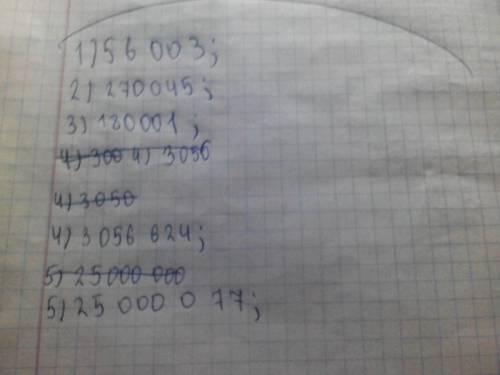 1) 56 003;
2) 270045;
3) 180001;
4) 300 4) 3056
4) 3050
4) 3056 624;
5) 25000 000
5) 25 000 0 77;